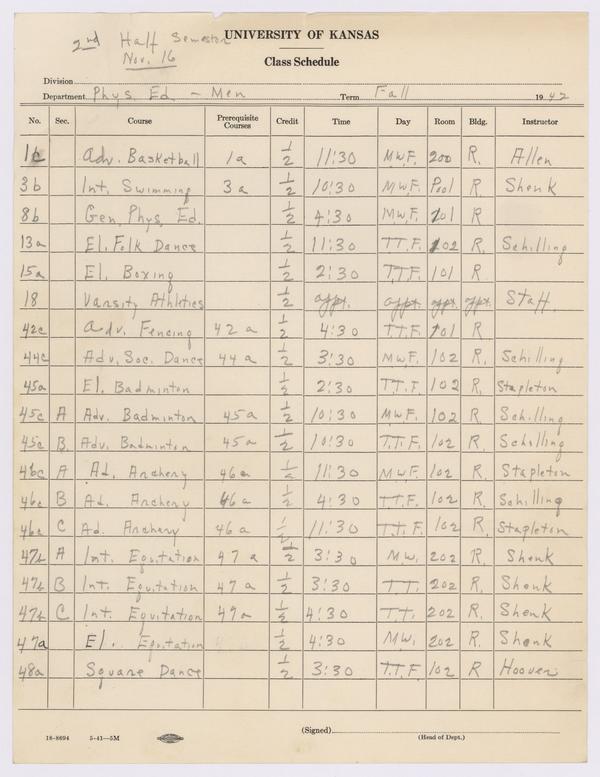 2nd Half Semester
UNIVERSITY OF KANSAS
Nov. 16
Class Schedule
Division
Department Phys. Ed. - Men Term Fall 1942
No. Sec. Course Prerequisite Courses Credit Time Day Room Bldg. Instructor
1c Adv. Basketball 1a 1/2 11:30 M.W.F. 200 R. Allen
3b Int. Swimming 3a 1/2 10:30 M.W.F. Pool R. Shenk
8b Gen. Phys. Ed. 1/2 4:30 M.W.F. 101 R
13a El. Folk Dance 1/2 11:30 T.T.F. 102 R. Schilling
15a El. Boxing 1/2 2:30 T.T.F. 101 R
18 Varsity Athletics 1/2 appt. appt. appt. appt. Staff
42c Adv. Fencing 42a 1/2 4:30 T.T.F. 101 R
44c Adv. Soc. Dance 44a 1/2 3:30 M.W.F. 102 R. Schilling
45a El. Badminton 1/2 2:30 T.T.F. 102 R. Stapleton
45c A Adv. Badminton 45a 1/2 10:30 M.W.F. 102 R. Schilling
45c B. Adv. Badminton 45a 1/2 10:30 T.T.F. 102 R. Schilling
46c A Ad. Archery 46a 1/2 11:30 M.W.F. 102 R. Stapleton
46c B Ad. Archery 46a 1/2 4:30 T.T.F. 102 R. Schilling
46c C Ad. Archery 46a 1/2 11:30 T.T.F. 102 R. Stapleton
47b A Int. Equitation 47a 1/2 3:30 M.W. 202 R. Shenk
47b B Int. Equitation 47a 1/2 3:30 T.T. 202 R. Shenk
47b C Int. Equitation 47a 1/2 4:30 T.T. 202 R. Shenk
47a El. Equitation 1/2 4:30 M.W. 202 R. Shenk
48a Square Dance 1/2 3:30 T.T.F. 102 R Hoover
(Signed)
18-8694 5-41—5M (Head of Dept.)